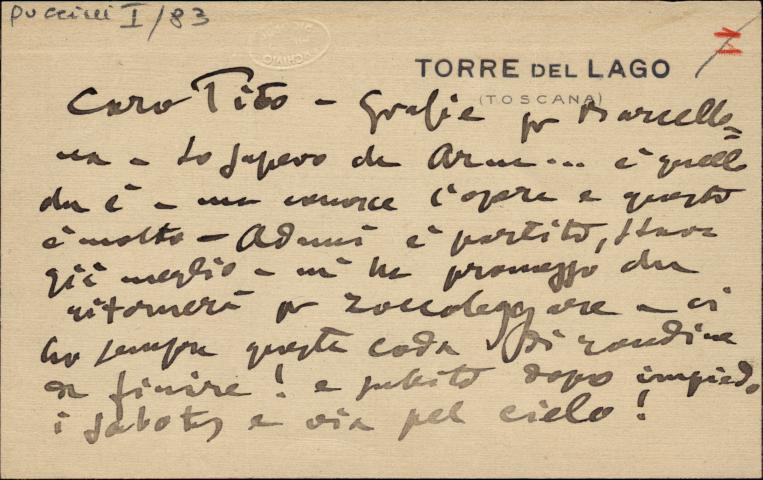 Puccini I/83
IV
TORRE DEL LAGO
(TOSCANA)
Caro Tito – Grazie pr Barcello=
na – Lo sapevo che Arm... è quello
che è – ma conosce l'opera e questo
è molto – Adami è partito, stava
già meglio – mi ha promesso che
ritornerà pr zoccoleggiare – ci
ho sempre questa coda di rondine
da finire! e subito dopo impiedo
i sabots e via pel cielo!